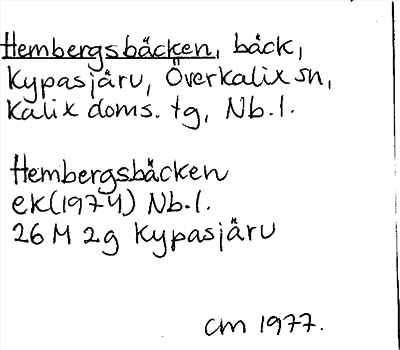 Hembergsbäcken, bäck,
Kypasjärv, Överkalix sn,
Kalix doms. tg, Nb.l.
Hembergsbäcken
ek(1974) Nb.l.
26 M 2g Kypasjärv
CM 1977.